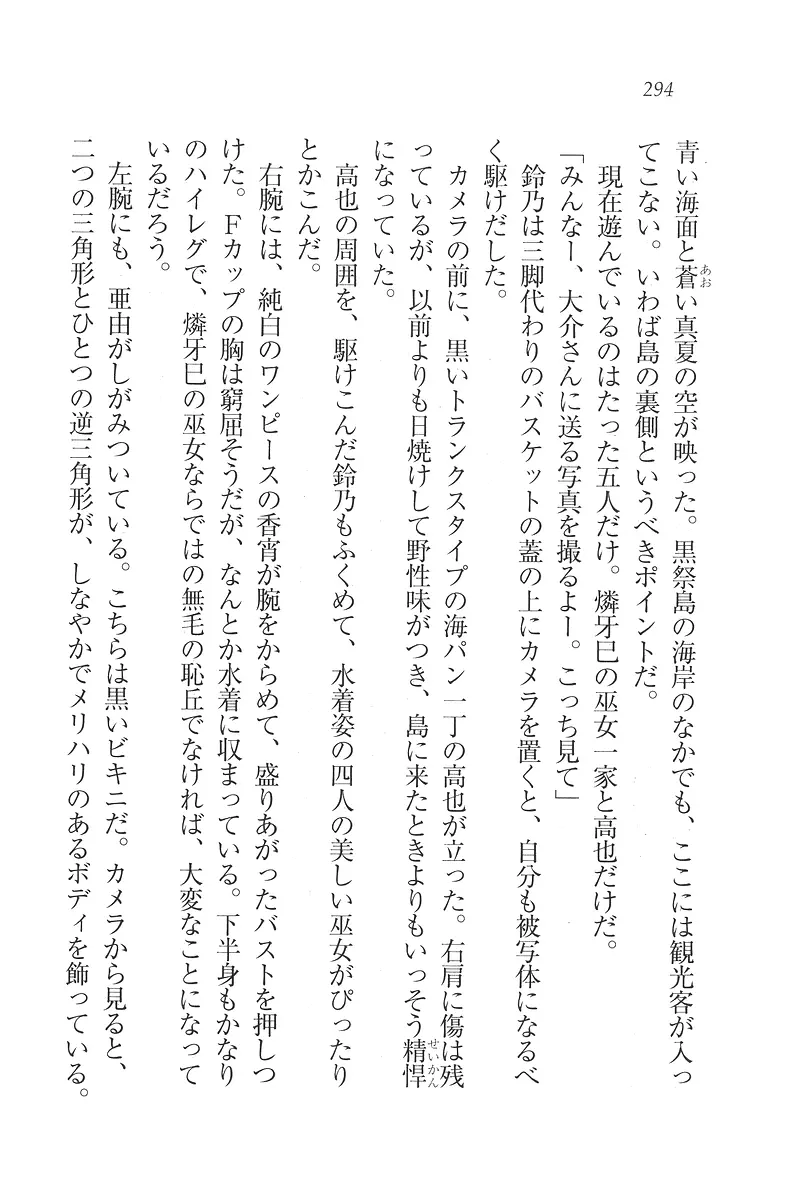 294
青い海面と蒼い真夏の空が映った。黒祭島の海岸のなかでも、ここには観光客が入っ
あお
てこない。いわば島の裏側というべきポイントだ。
現在遊んでいるのはたった五人だけ。燐牙巳の巫女一家と高也だけだ。
「みんなー、大介さんに送る写真を撮るよー。こっち見て」
鈴乃は三脚代わりのバスケットの蓋の上にカメラを置くと、自分も被写体になるべ
く駆けだした。
カメラの前に、黒いトランクスタイプの海パン一丁の高也が立った。右肩に傷は残
っているが、以前よりも日焼けして野性味がつき、島に来たときよりもいっそう精悍
せいかん
になっていた。
高也の周囲を、駆けこんだ鈴乃もふくめて、水着姿の四人の美しい巫女がぴったり
とかこんだ。
右腕には、純白のワンピースの香宵が腕をからめて、盛りあがったバストを押しつ
けた。Ｆカップの胸は窮屈そうだが、なんとか水着に収まっている。下半身もかなり
のハイレグで、燐牙巳の巫女ならではの無毛の恥丘でなければ、大変なことになって
いるだろう。
左腕にも、亜由がしがみついている。こちらは黒いビキニだ。カメラから見ると、
二つの三角形とひとつの逆三角形が、しなやかでメリハリのあるボディを飾っている。